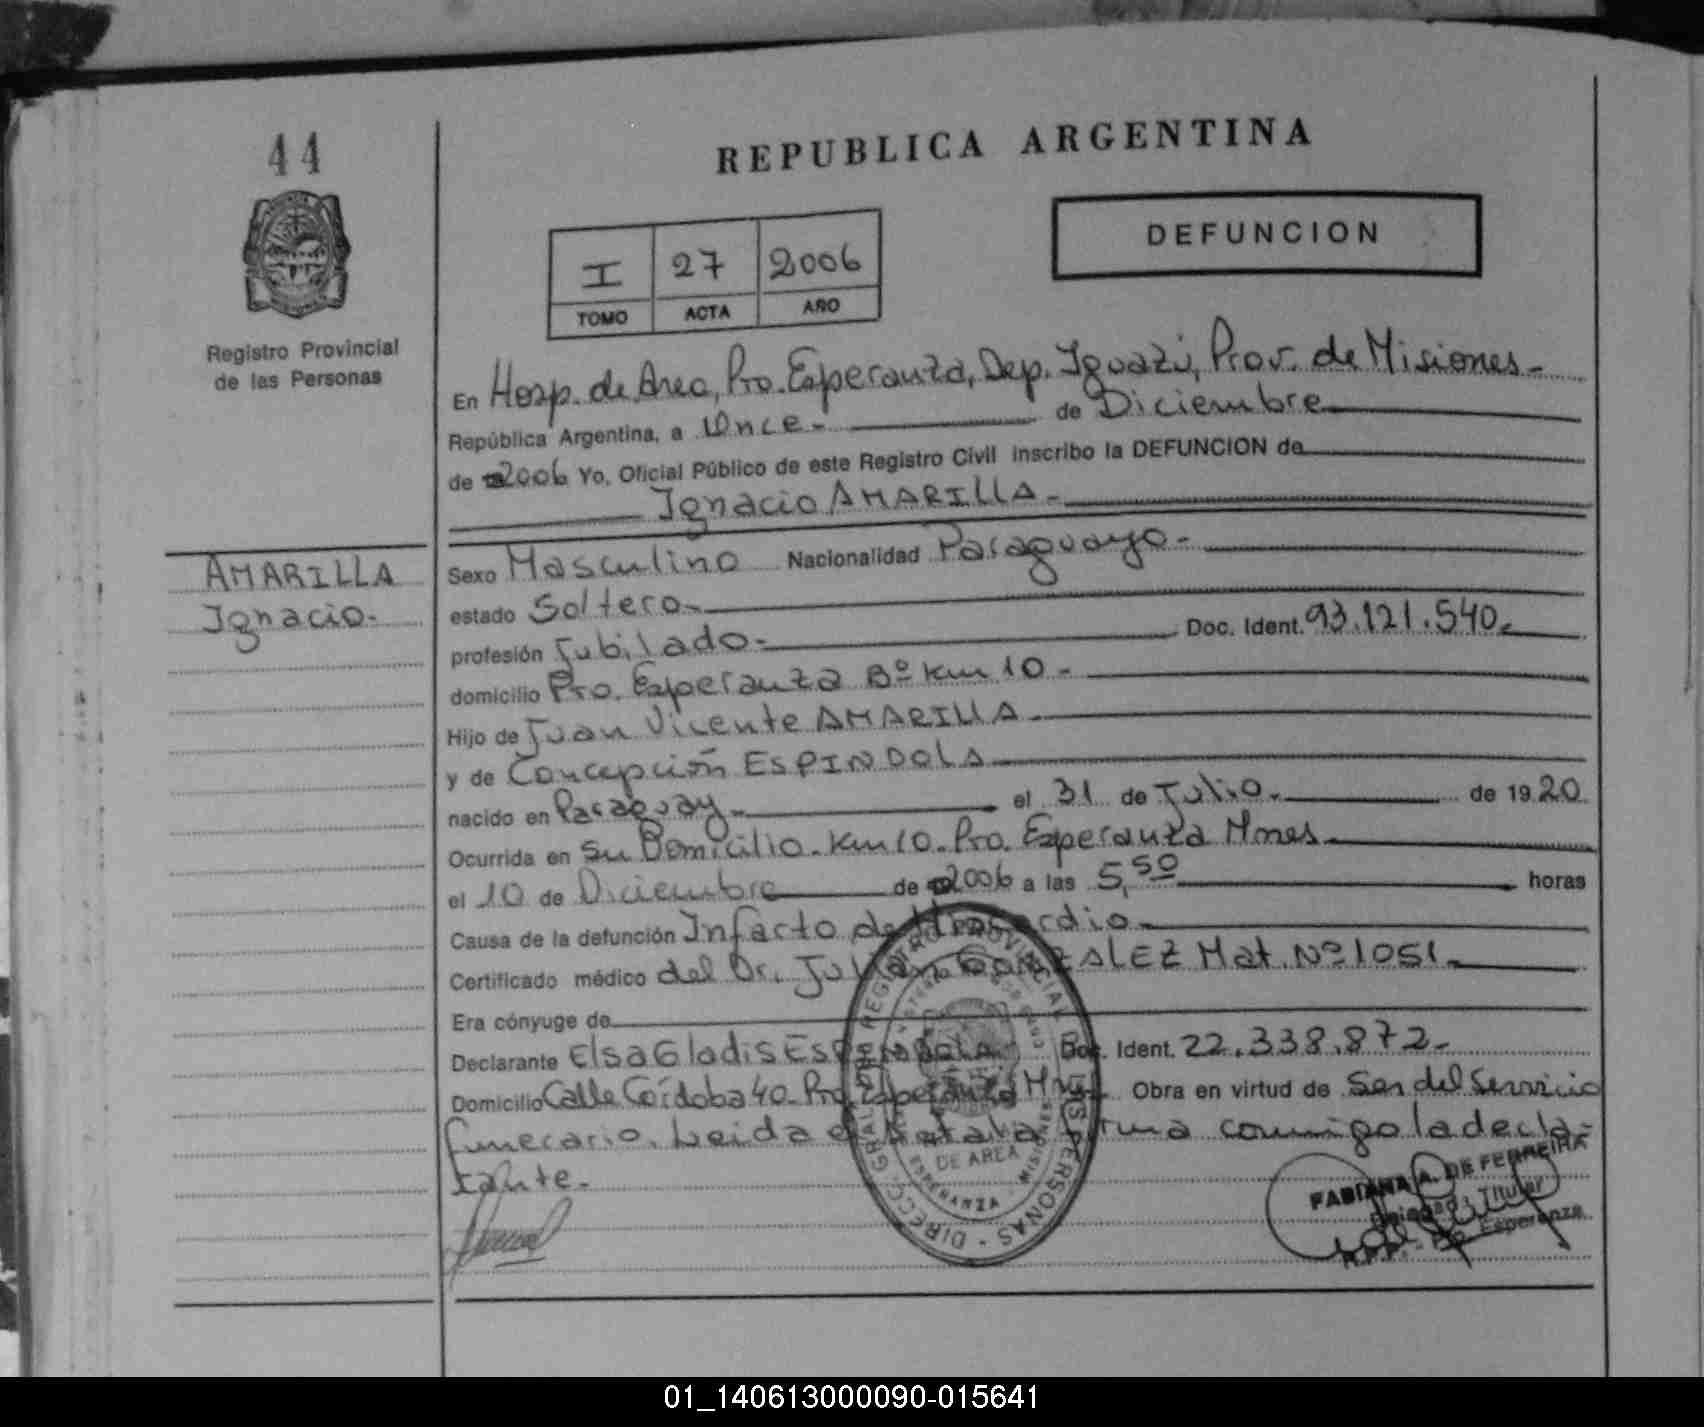 44
REPUBLICA ARGENTINA
DEFUNCION
I 27 2006
TOMO ACTA AÑO
Registro Provincial
de las Personas
En Hosp. de Area, Pto. Esperanza, Dep. Iguazú, Prov. de Misiones-
República Argentina, a Once- de Diciembre
de 2006 Yo, Oficial Público de este Registro Civil inscribo la DEFUNCION de
Ignacio AMARILLA-
AMARILLA
Ignacio-
Sexo Masculino Nacionalidad Paraguayo-
estado Soltero-
profesión Jubilado- Doc. Ident. 93.121.540-
domicilio Pto. Esperanza Bº Km 10-
Hijo de Juan Vicente AMARILLA-
y de Concepción ESPINDOLA
nacido en Paraguay- el 31 de Julio- de 1920
Ocurrida en su Domicilio-Km 10-Pto. Esperanza Mnes-
el 10 de Diciembre de 2006 a las 5,50 horas
Causa de la defunción Infarto de Miocardio-
Certificado médico del Dr. Julian GONZALEZ Mat. Nº 1051-
Era cónyuge de
Declarante Elsa Gladis ESPINDOLA- Doc. Ident. 22.338.872-
Domicilio Calle Córdoba 40-Pto. Esperanza Mnes- Obra en virtud de Ser del Servicio
funerario. Leida el Acta la firma conmigo la decla-
rante-
DIRECC. GRAL. DEL REGISTRO PROVINCIAL DE LAS PERSONAS
DE AREA
ESPERANZA - MISIONES
FABIANA A. DE FERREIRA
Delegada Titular
R.P.P. - Pto. Esperanza
01_140613000090-015641